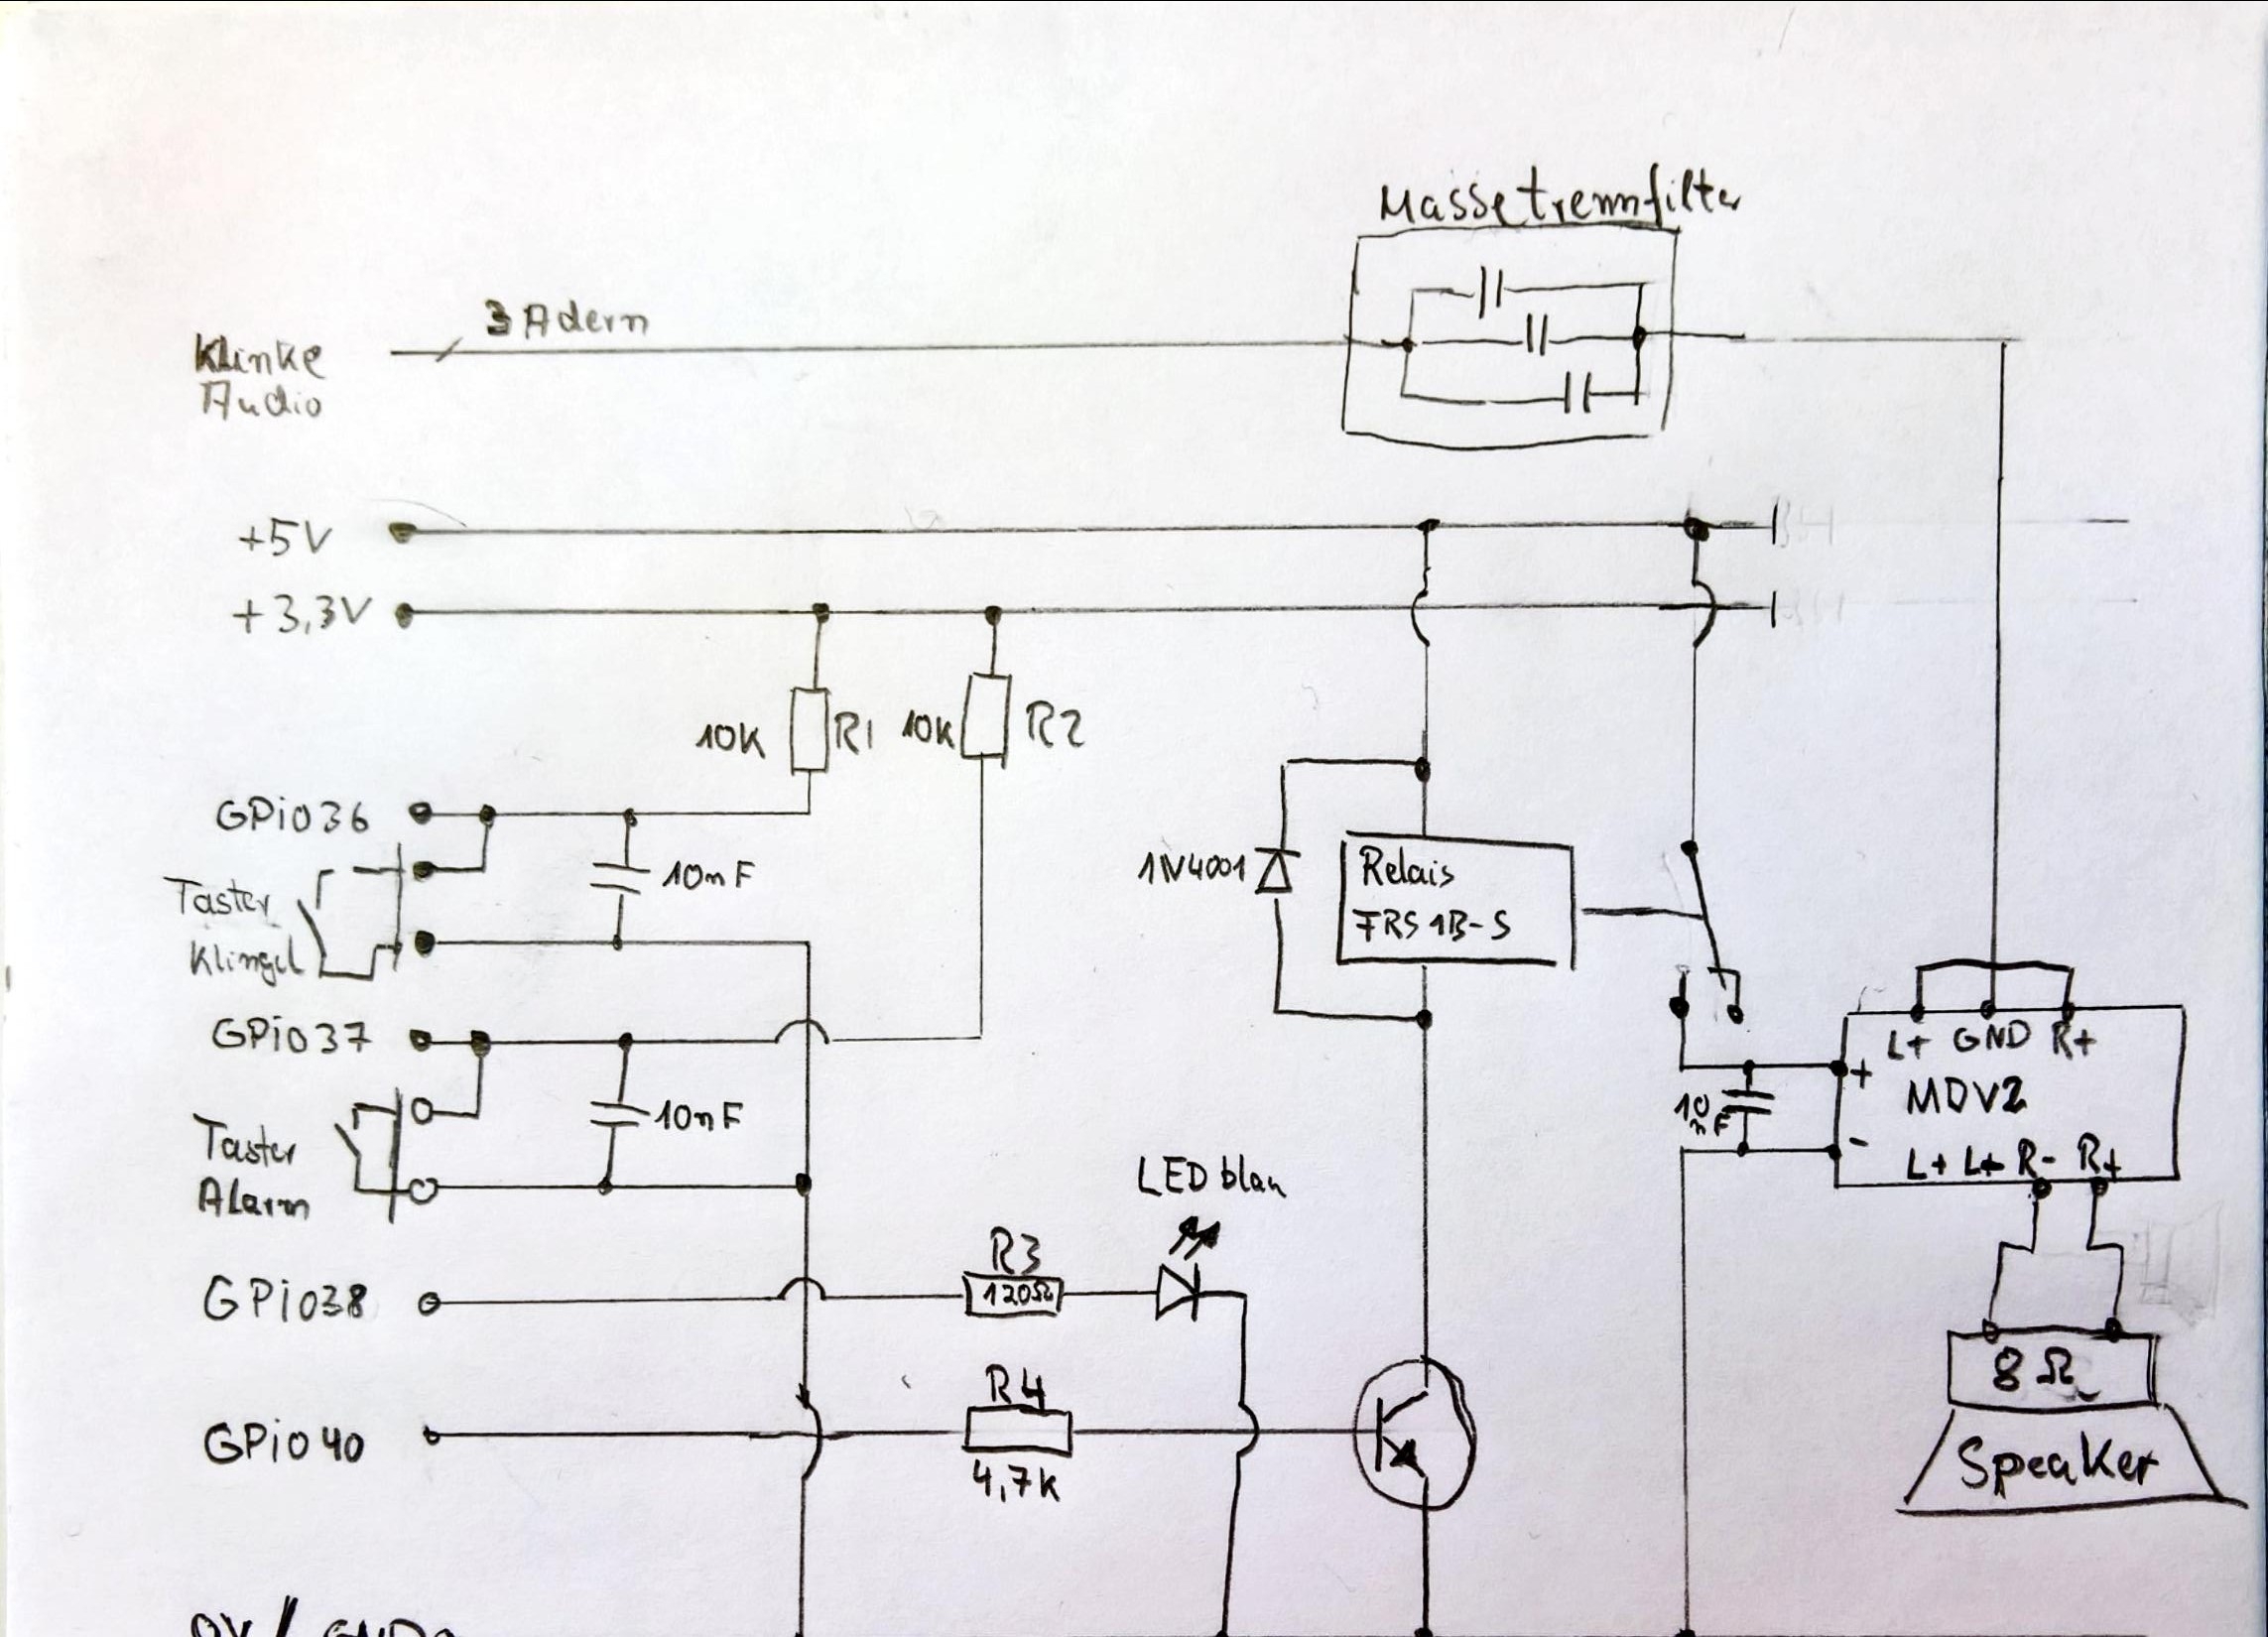 Massetrennfilter
3 Adern
Klinke
Audio
+5V
+3,3V
10K R1 10K R2
GPiO36
1N4001
Relais
FRS 1B-S
10nF
Taster
Klingel
GPiO37
L+ GND R+
+
MDV2
10
nF
-
L+ L+ R- R+
10nF
Taster
Alarm
LED blau
R3
120Ω
GPiO38
8Ω
R4
GPiO40
4,7K
Speaker
0V / GND